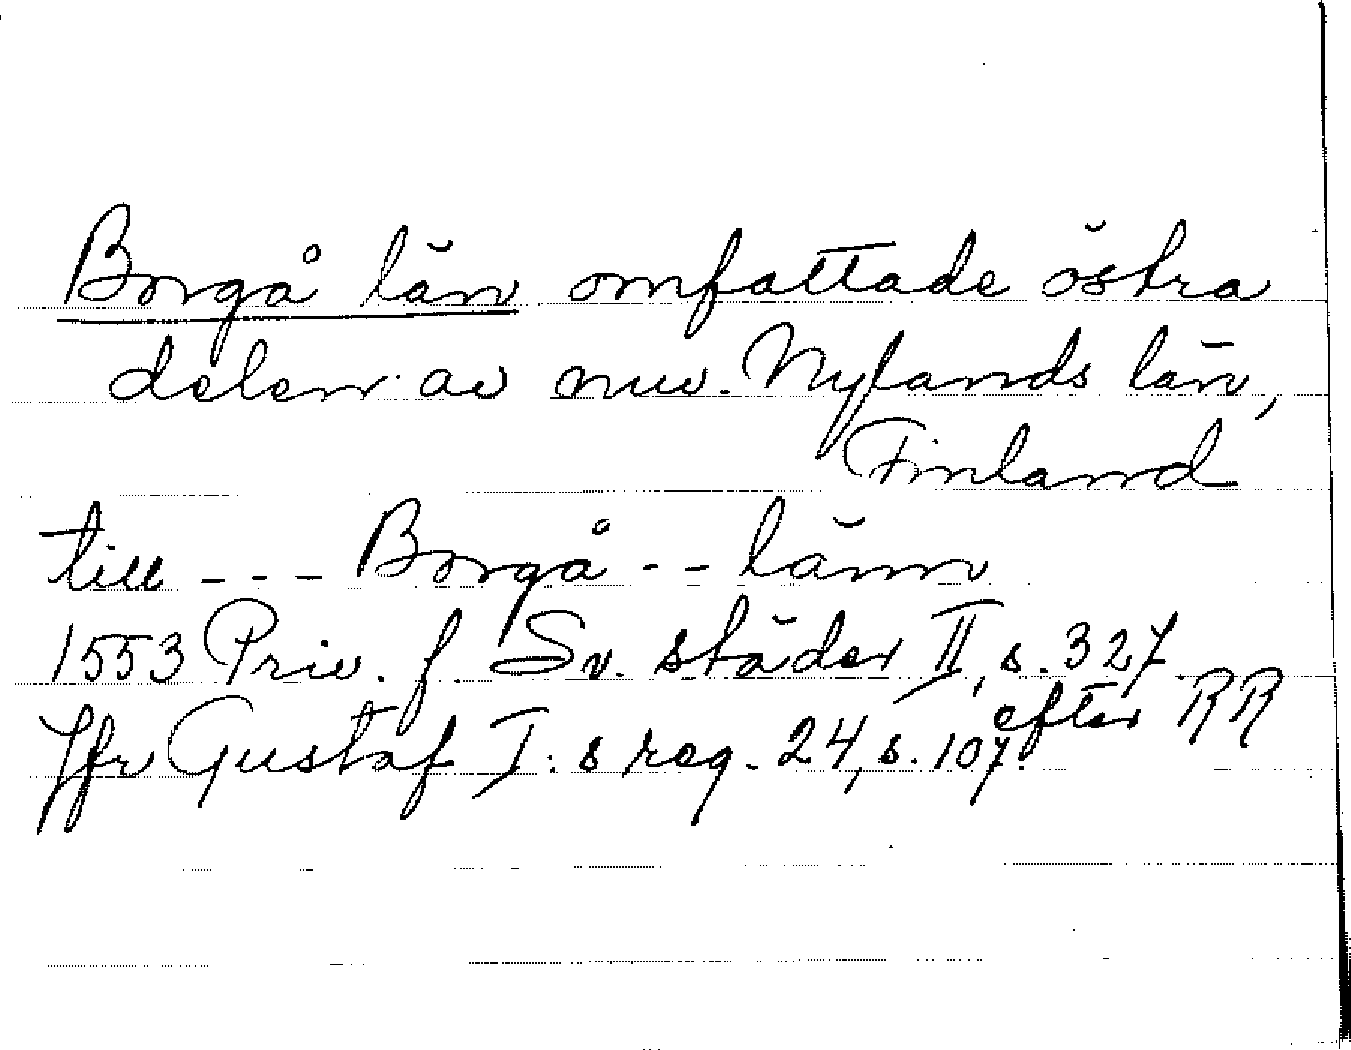 Borgå län omfattade östra
delen av nuv. Nylands län,
Finland
till --- Borgå -- länn
1553 Priv. f. Sv. städer II, s. 327
efter RR
Jfr Gustaf I:s reg. 24, s. 107.